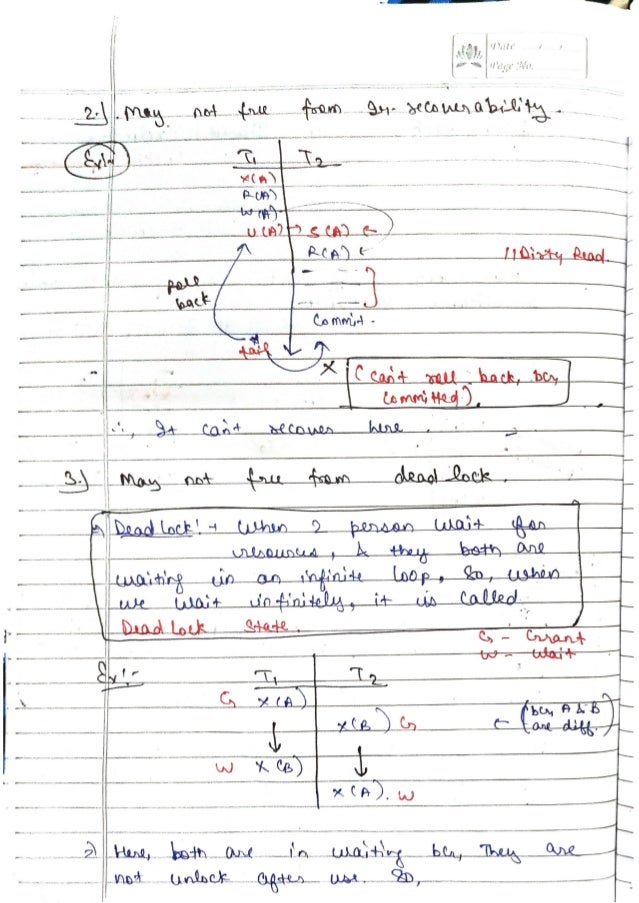 Date / /
Page No.
2.) May not free from Ir-recoverability.
Ex!-
T1 T2
X(A)
R(A)
W(A)
U(A) → S(A) ←
R(A) ← // Dirty Read
Roll
back
Commit.
fail
X
(Can't roll back, bcz
Committed).
∴, It can't recover here.
3.) May not free from dead lock.
Dead Lock! → When 2 person wait for
resources, & they both are
waiting in an infinite loop, So, when
we wait infinitely, it is called
Dead Lock State.
G - Grant
W - Wait
Ex!-
T1 T2
G X(A)
X(B) G ← (bcz A & B
are diff.)
W X(B)
X(A). W
⇒ Here, both are in waiting bcz, They are
not unlock after use. So,